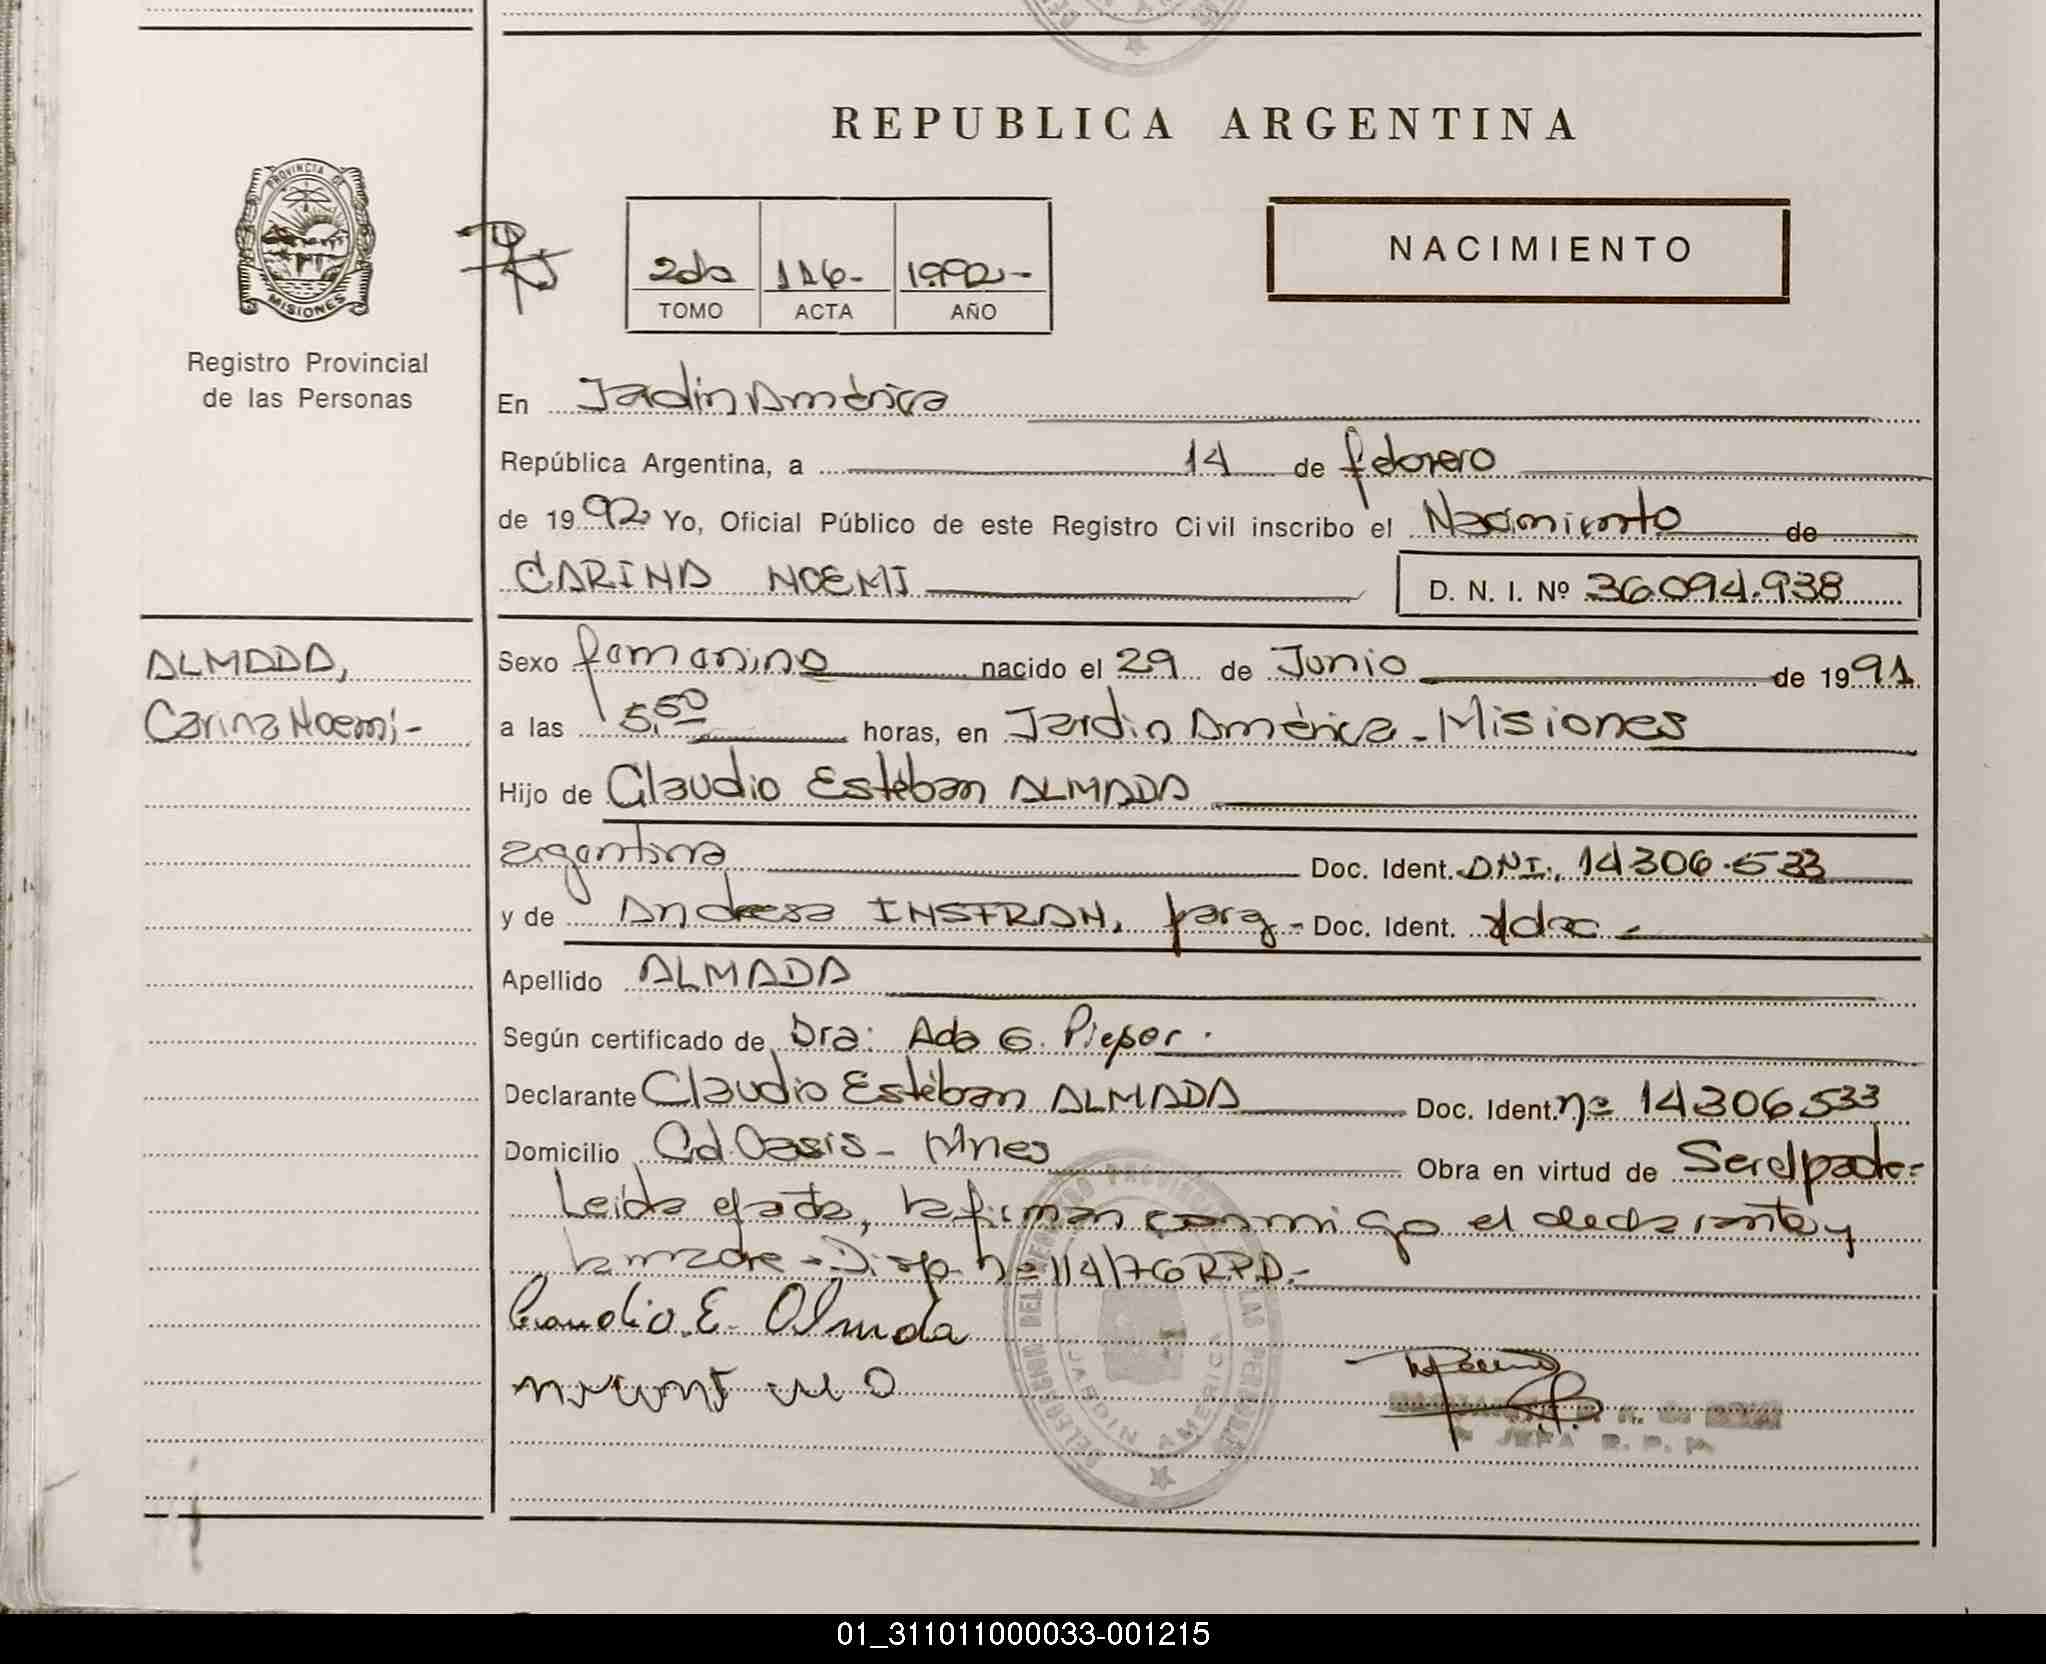 REPUBLICA ARGENTINA
PROVINCIA DE
MISIONES
Registro Provincial
de las Personas
2do 116- 1992-
TOMO ACTA AÑO
NACIMIENTO
En Jadin América
República Argentina, a 14 de febrero
de 1992 Yo, Oficial Público de este Registro Civil inscribo el Nacimiento de
CARINA NOEMI D. N. I. Nº 36.094.938
ALMADA,
Carina Noemi-
Sexo femenino nacido el 29 de Junio de 1991
a las 5,50 horas, en Jardin América - Misiones
Hijo de Claudio Esteban ALMADA
argentina Doc. Ident. DNI. 14306.533
y de Andresa INSFRAN, parg - Doc. Ident.
Apellido ALMADA
Según certificado de Dra: Ada G. Pieper.
Declarante Claudio Esteban ALMADA Doc. Ident. nº 14306533
Domicilio Cd. Oasis - Mnes Obra en virtud de Ser el padre-
Leida el acta, la firman conmigo el declarante y
la madre - Disp. nº 114/76 R.P.P.-
Claudio. E. Almada
DELEGACION DEL REGISTRO PROVINCIAL DE LAS PERSONAS
JARDIN AMERICA
JEFA R. P. P.
01_311011000033-001215